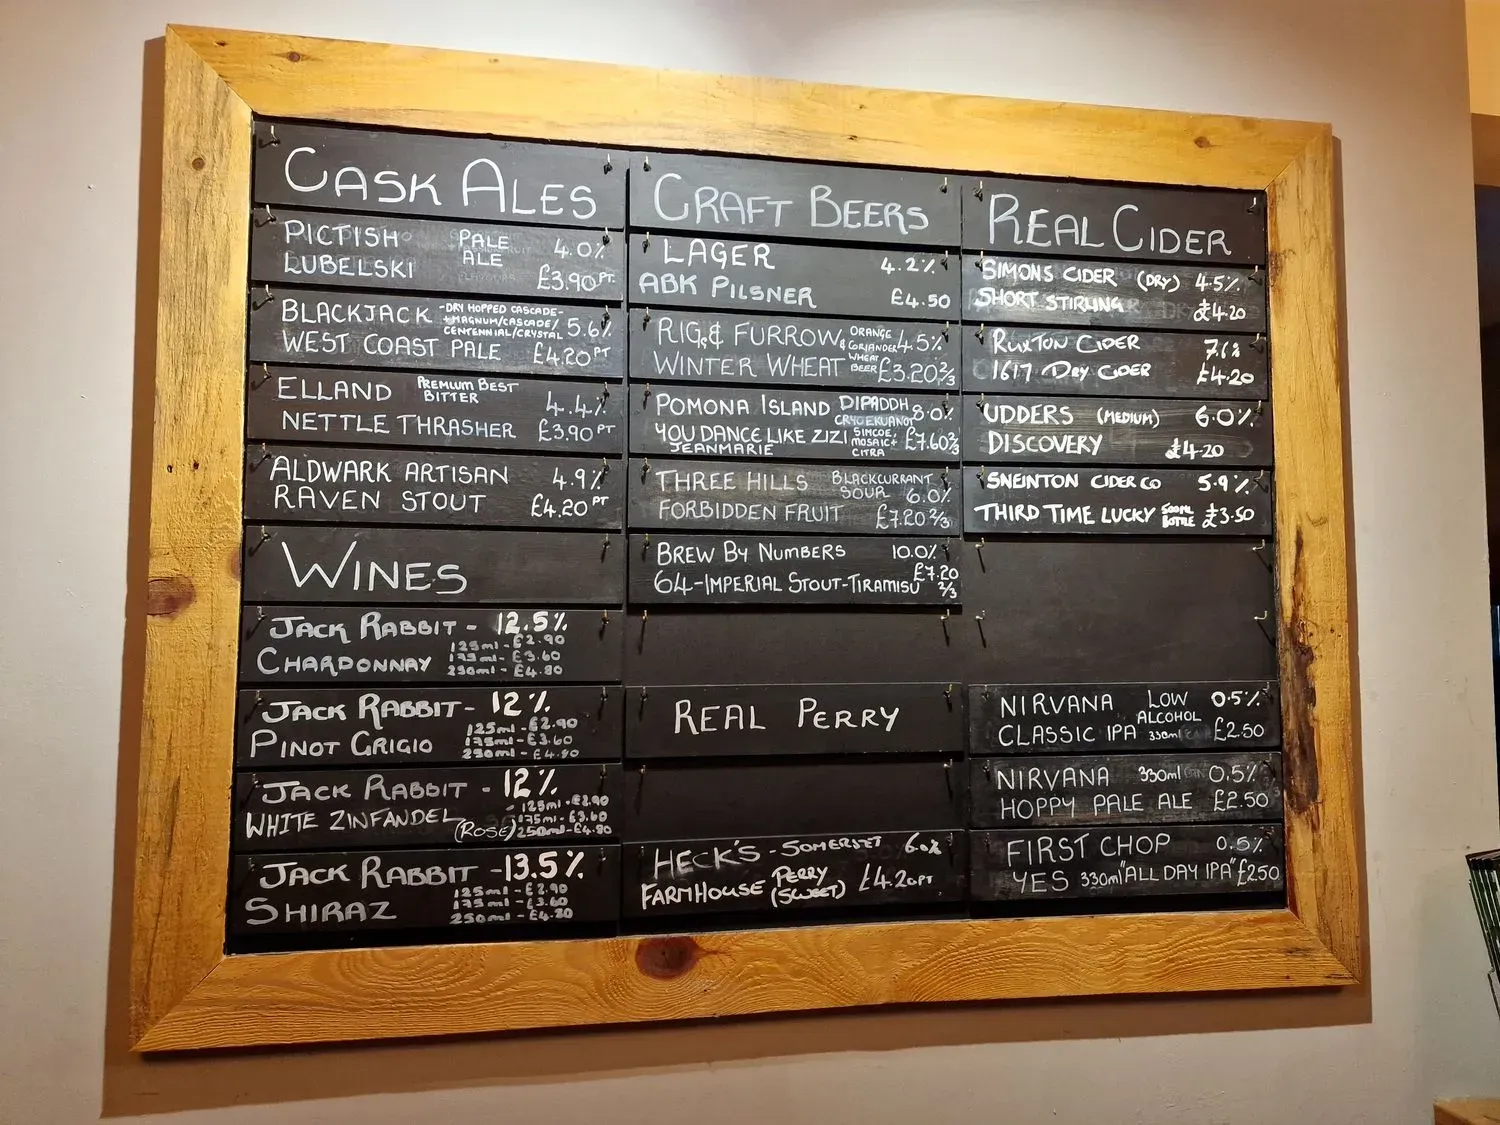 CASK ALES
PICTISH PALE 4.0%
LUBELSKI ALE £3.90 PT.
BLACKJACK -DRY HOPPED CASCADE-
+MAGNUM/CASCADE/ 5.6%
CENTENNIAL/CRYSTAL
WEST COAST PALE £4.20 PT
ELLAND PREMIUM BEST 4.4%
BITTER
NETTLE THRASHER £3.90 PT
ALDWARK ARTISAN 4.9%
RAVEN STOUT £4.20 PT
WINES
JACK RABBIT - 12.5%
125ml - £2.90
CHARDONNAY 175ml - £3.60
250ml - £4.80
JACK RABBIT - 12%
125ml - £2.90
PINOT GRIGIO 175ml - £3.60
250ml - £4.80
JACK RABBIT - 12%
- 125ml - £2.90
WHITE ZINFANDEL 175ml - £3.60
(ROSE) 250ml - £4.80
JACK RABBIT - 13.5%
125ml - £2.90
SHIRAZ 175ml - £3.60
250ml - £4.80
CRAFT BEERS
LAGER 4.2%
ABK PILSNER £4.50
RIG & FURROW ORANGE 4.5%
& CORIANDER
WINTER WHEAT WHEAT £3.20 2/3
BEER
POMONA ISLAND DIPADDH 8.0%
CRYO EKUANOT
YOU DANCE LIKE ZIZI SIMCOE, £7.60 2/3
JEANMARIE MOSAIC+
CITRA
THREE HILLS BLACKCURRANT
SOUR 6.0%
FORBIDDEN FRUIT £7.20 2/3
BREW BY NUMBERS 10.0%
64-IMPERIAL STOUT-TIRAMISU £7.20
2/3
REAL PERRY
HECK'S - SOMERSET 6.0%
FARMHOUSE PERRY £4.20PT
(SWEET)
REAL CIDER
SIMONS CIDER (DRY) 4.5%
SHORT STIRLING £4.20
RUXTON CIDER 7.6%
1617 DRY CIDER £4.20
UDDERS (MEDIUM) 6.0%
DISCOVERY £4.20
SNEINTON CIDER CO 5.9%
THIRD TIME LUCKY 500ML £3.50
BOTTLE
NIRVANA LOW 0.5%
ALCOHOL
CLASSIC IPA 330ml £2.50
NIRVANA 330ml 0.5%
HOPPY PALE ALE £2.50
FIRST CHOP 0.5%
YES 330ml "ALL DAY IPA" £2.50